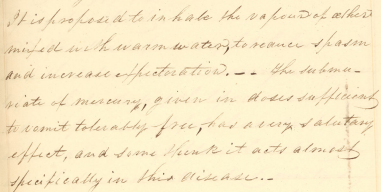 It is proposed to inhale the vapour of æther
mixed with warm water, to reduce spasm
and increase expectoration. -- The submu-
riate of mercury, given in doses sufficient
to vomit tolerably free, has a very salutary
effect, and some think it acts almost
specifically in this disease. -